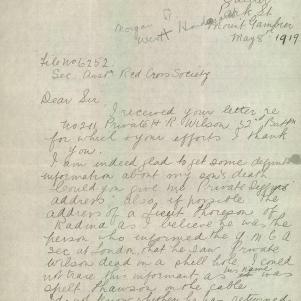 Park St
Mount Gambier
May 8th 1919
File No 6252.
Sec Aust Red Cross Society
Dear Sir
I received your letter re
No 211 Private H R Wilson 32nd Battn
for which & your efforts I thank
you.
I am indeed glad to get some definite
information about my son's death
could you give me Private
address also if possible the
address of a Lieut Thoreson of
Radina as I believe he was the
person who informed the Y M C A
Sec at London, that he saw Private
Wilson dead in a shell hole. I could
not trace this informant, as his name was
spelt Thawson in the cable